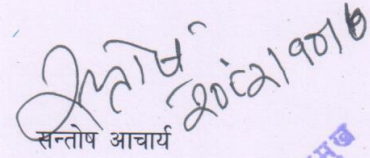 सन्तोष
२०८२/१०/७
सन्तोष आचार्य